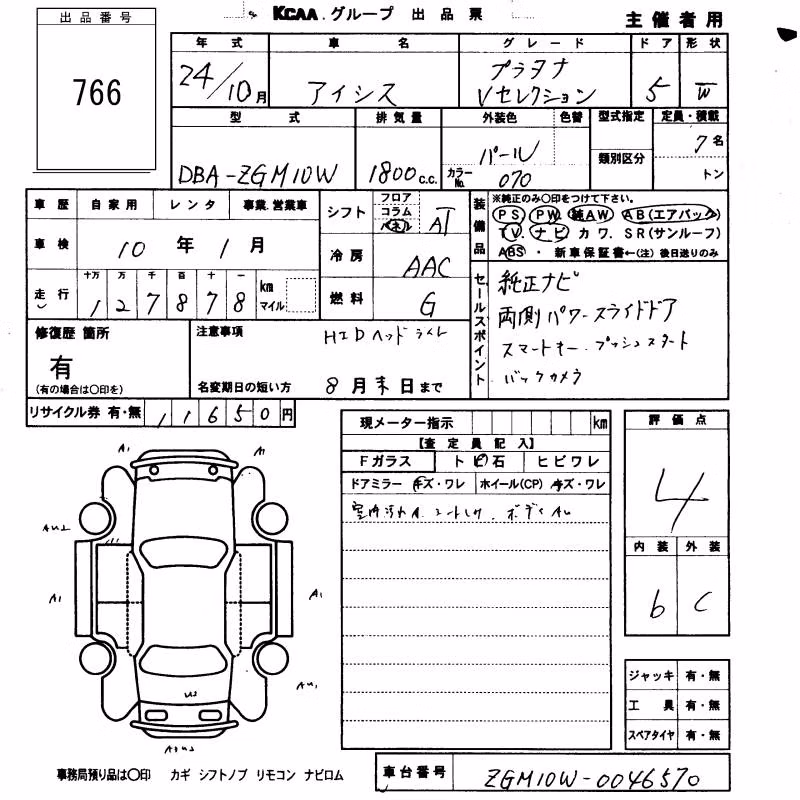 出品番号
766
KCAA グループ 出品票
主催者用
年式 車名 グレード ドア 形状
24/10月 アイシス プラタナ Vセレクション 5 W
型式 排気量 外装色 色替 型式指定 定員・積載
DBA-ZGM10W 1800c.c. パール カラーNo. 070 類別区分 7名 トン
車歴 自家用 レンタ 事業.営業車
車検 10年1月
走行 十万 万 千 百 十 一
127878 km マイル
シフト フロア コラム パネル AT
冷房 AAC
燃料 G
装備品
※純正のみ〇印をつけて下さい。
PS PW. 純AW ABエアバック
TV. ナビ カワ. SR(サンルーフ)
ABS ・ 新車保証書←(注) 後日送りのみ
セールスポイント
純正ナビ
両側パワースライドドア
スマートキー.プッシュスタート
バックカメラ
修復歴 箇所
有
(有の場合は〇印を)
注意事項 HIDヘッドライト
名変期日の短い方 8月末日まで
リサイクル券 有・無 11650円
現メーター指示 km
【査定員記入】
Fガラス トビ石 ヒビワレ
ドアミラー キズ・ワレ ホイール(CP) キズ・ワレ
室内汚れA.シートしわ.ボディAu
評価点
4
内装 外装
b C
A1 A1
AU2
A1 A1
AU1
U2
AU2
ジャッキ 有・無
工具 有・無
スペアタイヤ 有・無
事務局預り品は〇印 カギ シフトノブ リモコン ナビロム
車台番号 ZGM10W-0046570